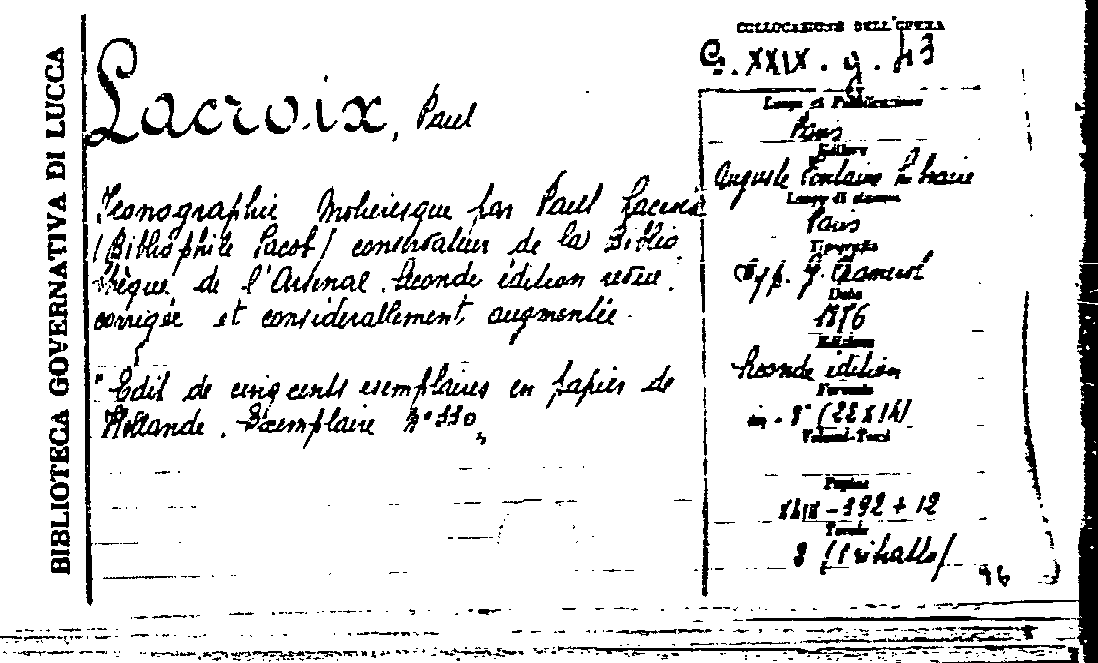 BIBLIOTECA GOVERNATIVA DI LUCCA
Lacroix, Paul
Iconographie Molieresque par Paul Lacroix
(Bibliophile Jacob) conservateur de la Biblio
thèque de l'Arsenal. Seconde édition revue.
corrigée et considerallement augmentée.
"Edit de cinq cents esemplaires en papier de
Hollande. Exemplaire N°330"
COLLOCAZIONE DELL'OPERA
C. XXIX. g. 43
Luogo di Pubblicazione
Paris
Editore
Auguste Fontaine Libraire
Luogo di stampa
Paris
Tipografia
Typ. G. Chamerot
Data
1876
Edizione
Seconde édition
Formato
in-8° (22x14)
Volumi-Tomi
Pagine
392 + 12
Tavole
(1 ritratto)
96